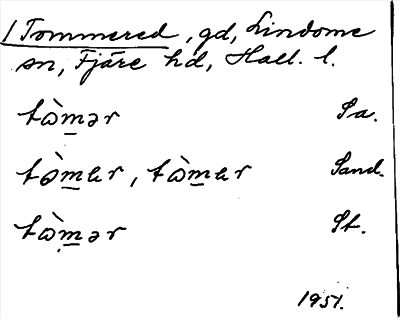 / Tommered, gd, Lindome
sn, Fjäre hd, Hall. l.
tὼm̲ər Sa.
tɔ̀m̲ɐr, tὼm̲ɐr Sand.
tὼm̲ər St.
1951.